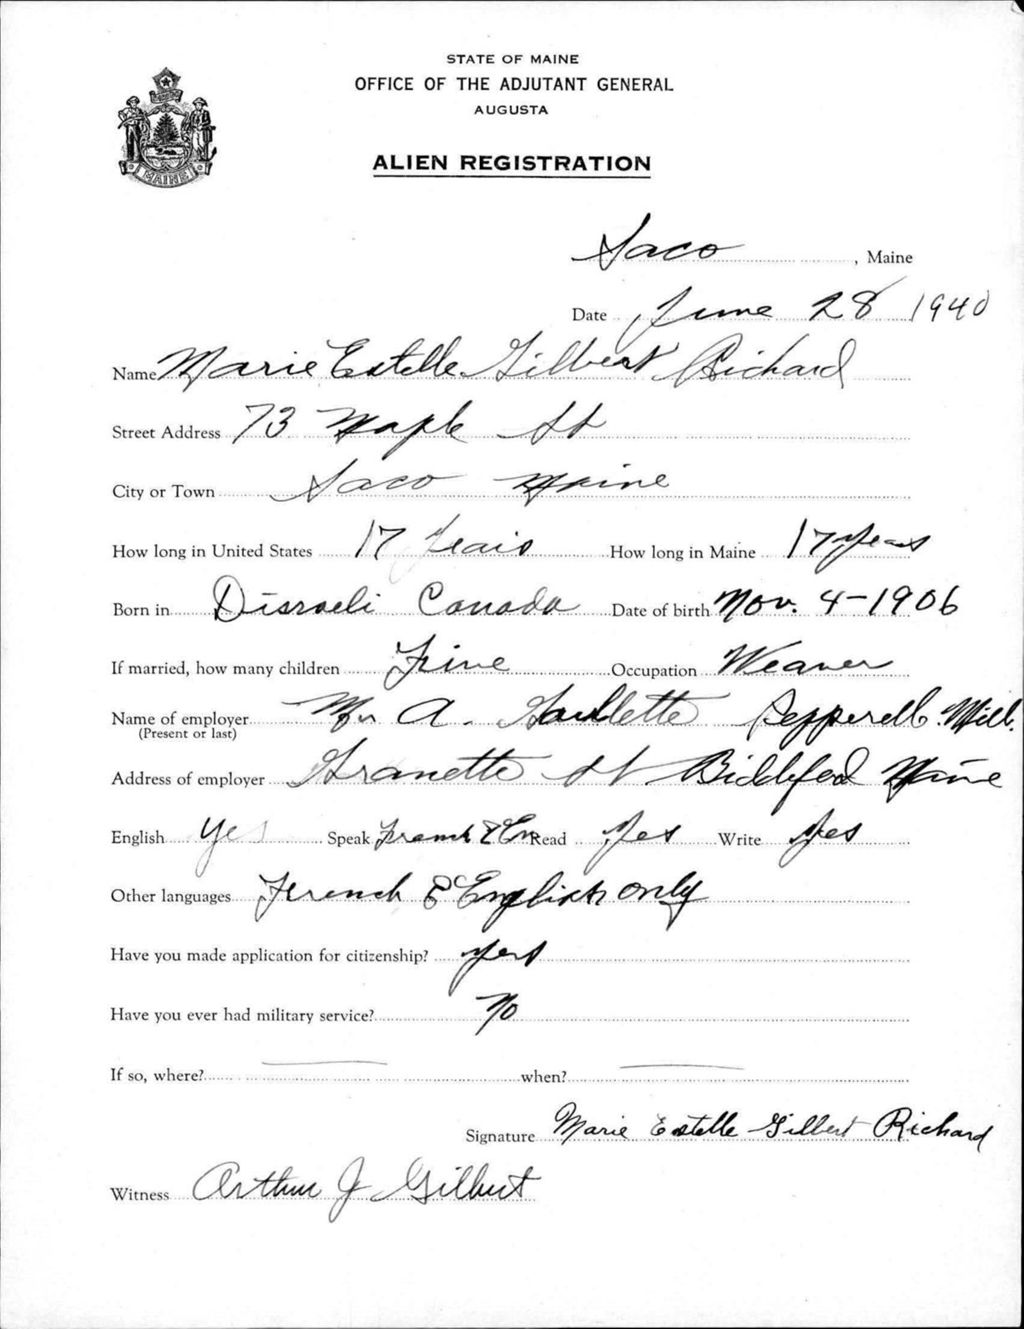 STATE OF MAINE
OFFICE OF THE ADJUTANT GENERAL
AUGUSTA
ALIEN REGISTRATION
MAINE
Saco, Maine
Date June 28 1940
Name Marie Estelle Gilbert Richard
Street Address 73 Maple St
City or Town Saco Maine
How long in United States 17 Years How long in Maine 17 Years
Born in Disraeli Canada Date of birth Nov. 4-1906
If married, how many children Five Occupation Weaver
Name of employer Mr A. Pepperell Mill.
(Present or last)
Address of employer St Biddeford Maine
English Yes Speak French & En Read Yes Write Yes
Other languages French & English only
Have you made application for citizenship? Yes
Have you ever had military service? No
If so, where? when?
Signature Marie Estelle Gilbert Richard
Witness Arthur J Gilbert